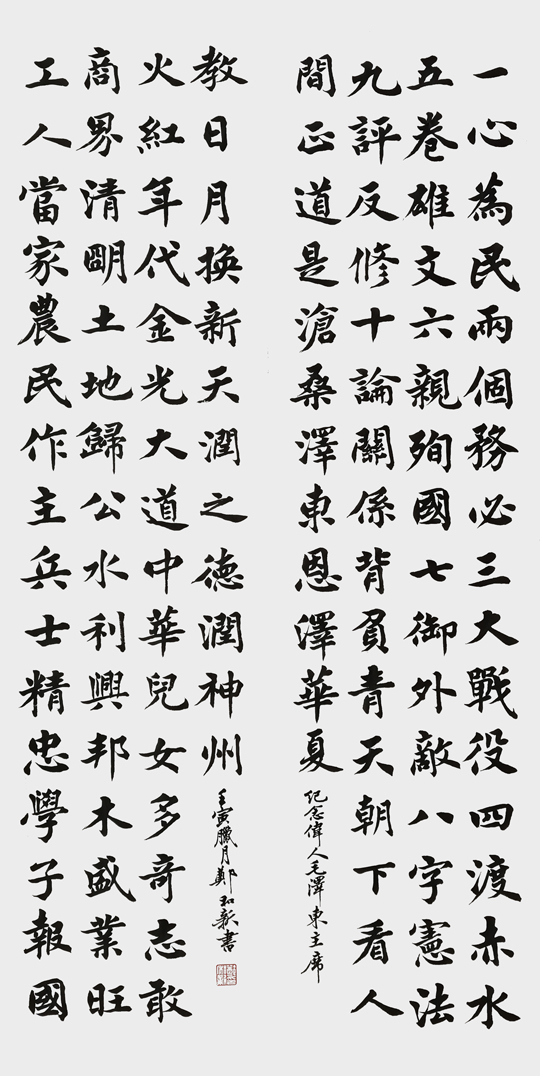 一心為民兩個務必三大戰役四渡赤水
五卷雄文六親殉國七御外敵八字憲法
九評反修十論關係背負青天朝下看人
間正道是滄桑澤東恩澤華夏
紀念偉人毛澤東主席
工人當家農民作主兵士精忠學子報國
商界清明土地歸公水利興邦木盛業旺
火紅年代金光大道中華兒女多奇志敢
教日月換新天潤之德潤神州
壬寅臘月鄭新書